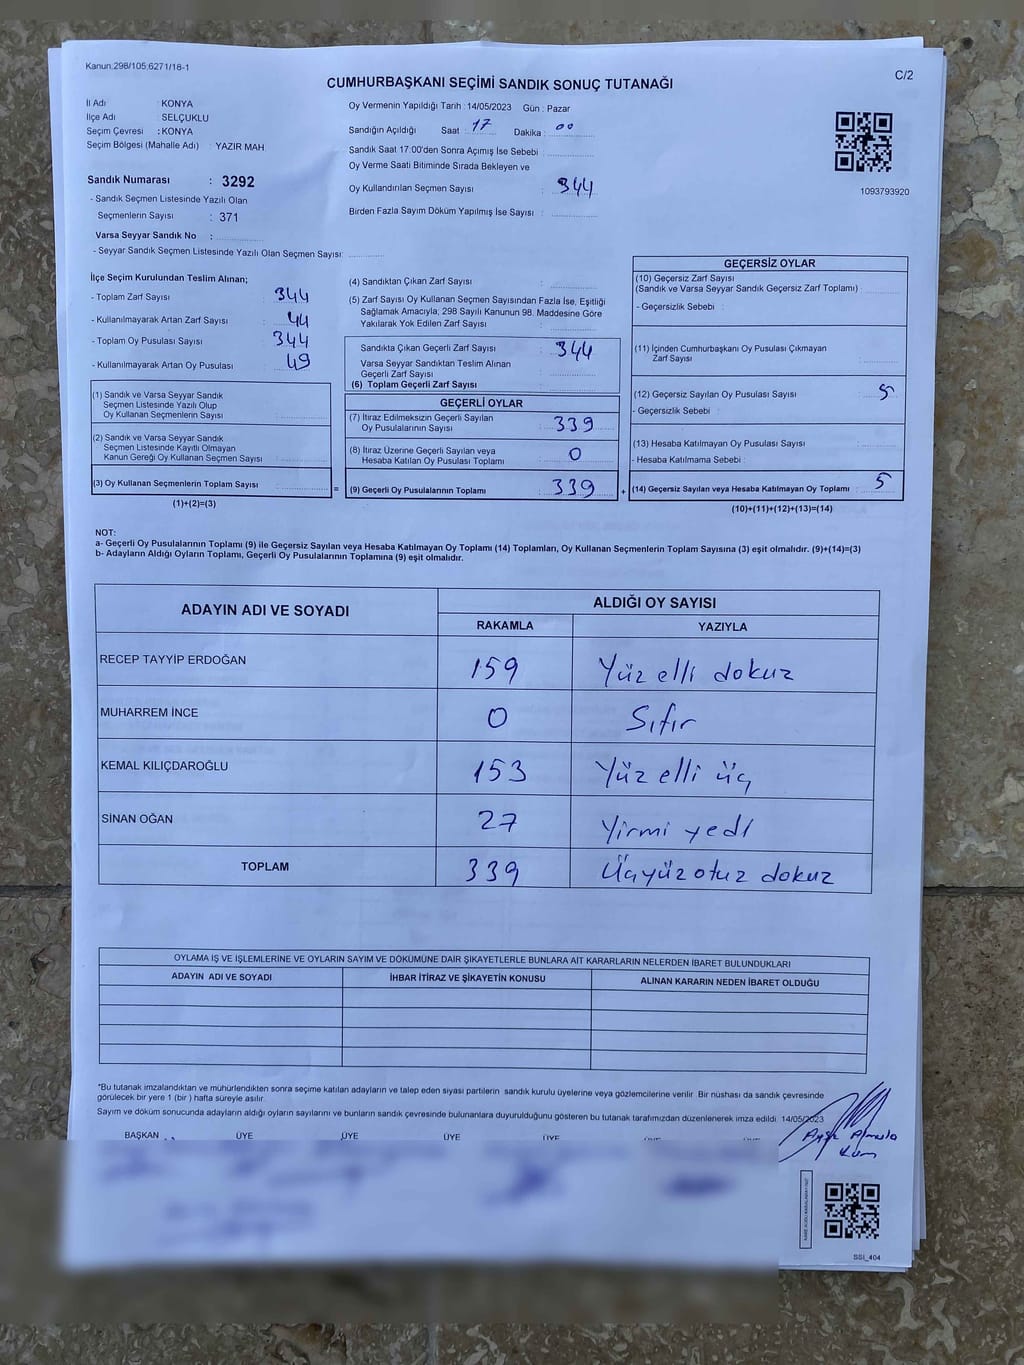 Kanun.298/105;6271/18-1
C/2
CUMHURBAŞKANI SEÇİMİ SANDIK SONUÇ TUTANAĞI
İl Adı : KONYA
İlçe Adı : SELÇUKLU
Seçim Çevresi : KONYA
Seçim Bölgesi (Mahalle Adı) : YAZIR MAH
Sandık Numarası : 3292
- Sandık Seçmen Listesinde Yazılı Olan
Seçmenlerin Sayısı : 371
Varsa Seyyar Sandık No :
- Seyyar Sandık Seçmen Listesinde Yazılı Olan Seçmen Sayısı:
Oy Vermenin Yapıldığı Tarih : 14/05/2023 Gün : Pazar
Sandığın Açıldığı Saat : 17 Dakika : 00
Sandık Saat 17.00'den Sonra Açımış İse Sebebi :
Oy Verme Saati Bitiminde Sırada Bekleyen ve
Oy Kullandırılan Seçmen Sayısı : 344
Birden Fazla Sayım Döküm Yapılmış İse Sayısı :
1093793920
İlçe Seçim Kurulundan Teslim Alınan;
- Toplam Zarf Sayısı : 344
- Kullanılmayarak Artan Zarf Sayısı : 44
- Toplam Oy Pusulası Sayısı : 344
- Kullanılmayarak Artan Oy Pusulası : 49
(1) Sandık ve Varsa Seyyar Sandık
Seçmen Listesinde Yazılı Olup
Oy Kullanan Seçmenlerin Sayısı :
(2) Sandık ve Varsa Seyyar Sandık
Seçmen Listesinde Kayıtlı Olmayan
Kanun Gereği Oy Kullanan Seçmen Sayısı :
(3) Oy Kullanan Seçmenlerin Toplam Sayısı : =
(1)+(2)=(3)
(4) Sandıktan Çıkan Zarf Sayısı :
(5) Zarf Sayısı Oy Kullanan Seçmen Sayısından Fazla İse, Eşitliği
Sağlamak Amacıyla; 298 Sayılı Kanunun 98. Maddesine Göre
Yakılarak Yok Edilen Zarf Sayısı :
Sandıkta Çıkan Geçerli Zarf Sayısı : 344
Varsa Seyyar Sandıktan Teslim Alınan
Geçerli Zarf Sayısı :
(6) Toplam Geçerli Zarf Sayısı :
GEÇERLİ OYLAR
(7) İtiraz Edilmeksizin Geçerli Sayılan
Oy Pusulalarının Sayısı : 339
(8) İtiraz Üzerine Geçerli Sayılan veya
Hesaba Katılan Oy Pusulası Toplamı : 0
(9) Geçerli Oy Pusulalarının Toplamı : 339 +
GEÇERSİZ OYLAR
(10) Geçersiz Zarf Sayısı
(Sandık ve Varsa Seyyar Sandık Geçersiz Zarf Toplamı) :
- Geçersizlik Sebebi :
(11) İçinden Cumhurbaşkanı Oy Pusulası Çıkmayan
Zarf Sayısı :
(12) Geçersiz Sayılan Oy Pusulası Sayısı : 5
- Geçersizlik Sebebi :
(13) Hesaba Katılmayan Oy Pusulası Sayısı :
- Hesaba Katılmama Sebebi :
(14) Geçersiz Sayılan veya Hesaba Katılmayan Oy Toplamı : 5
(10)+(11)+(12)+(13)=(14)
NOT:
a- Geçerli Oy Pusulalarının Toplamı (9) ile Geçersiz Sayılan veya Hesaba Katılmayan Oy Toplamı (14) Toplamları, Oy Kullanan Seçmenlerin Toplam Sayısına (3) eşit olmalıdır. (9)+(14)=(3)
b- Adayların Aldığı Oyların Toplamı, Geçerli Oy Pusulalarının Toplamına (9) eşit olmalıdır.
ADAYIN ADI VE SOYADI ALDIĞI OY SAYISI
RAKAMLA YAZIYLA
RECEP TAYYİP ERDOĞAN 159 Yüz elli dokuz
MUHARREM İNCE 0 Sıfır
KEMAL KILIÇDAROĞLU 153 Yüz elli üç
SİNAN OĞAN 27 Yirmi yedi
TOPLAM 339 Üçyüz otuz dokuz
OYLAMA İŞ VE İŞLEMLERİNE VE OYLARIN SAYIM VE DÖKÜMÜNE DAİR ŞİKAYETLERLE BUNLARA AİT KARARLARIN NELERDEN İBARET BULUNDUKLARI
ADAYIN ADI VE SOYADI İHBAR İTİRAZ VE ŞİKAYETİN KONUSU ALINAN KARARIN NEDEN İBARET OLDUĞU
*Bu tutanak imzalandıktan ve mühürlendikten sonra seçime katılan adayların ve talep eden siyasi partilerin sandık kurulu üyelerine veya gözlemcilerine verilir. Bir nüshası da sandık çevresinde
görülecek bir yere 1 (bir) hafta süreyle asılır.
Sayım ve döküm sonucunda adayların aldığı oyların sayılarını ve bunların sandık çevresinde bulunanlara duyurulduğunu gösteren bu tutanak tarafımızdan düzenlenerek imza edildi. 14/05/2023
BAŞKAN ÜYE ÜYE ÜYE ÜYE ÜYE ÜYE
SSI_404